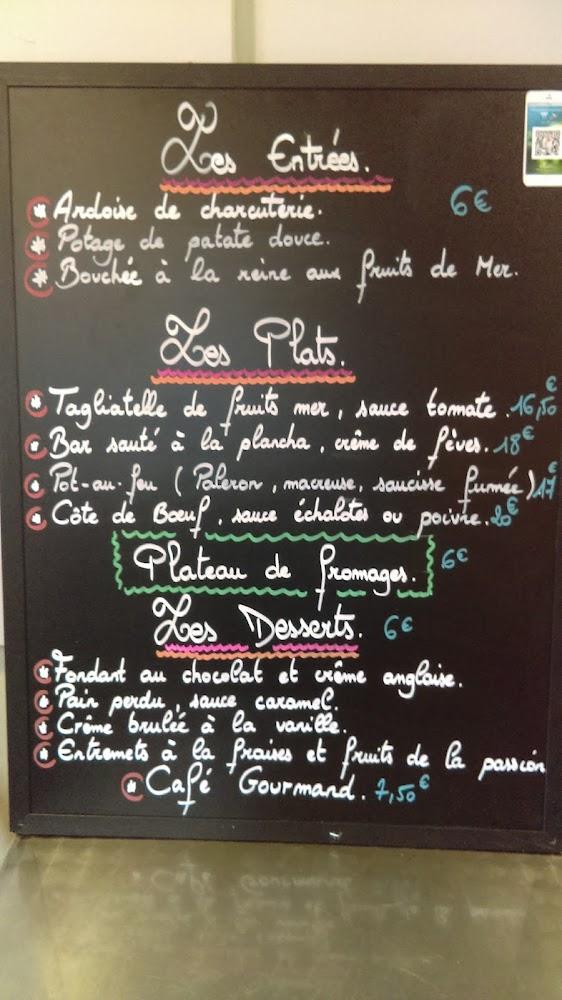 Les Entrées.
Ardoise de charcuterie. 6€
Potage de patate douce.
Bouchée à la reine aux fruits de Mer.
Les Plats.
Tagliatelle de fruits mer, sauce tomate. 16,50€
Bar sauté à la plancha, crême de fèves. 18€
Pot-au-feu (Paleron, macreuse, saucisse fumée) 17€
Côte de Boeuf, sauce échalotes ou poivre. 20€
Plateau de fromages. 6€
Les Desserts. 6€
Fondant au chocolat et crême anglaise.
Pain perdu, sauce caramel.
Crême brulée à la vanille.
Entremets à la fraises et fruits de la passion
Café Gourmand. 7,50€